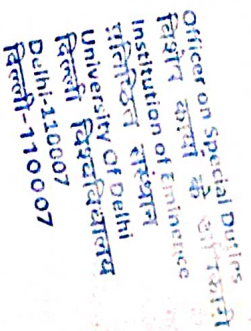 Officer on Special Duties
विशेष कार्य के
Institution of Eminence
प्रतिष्ठित संस्थान
University Of Delhi
दिल्ली विश्वविद्यालय
Delhi-110007
दिल्ली-110007